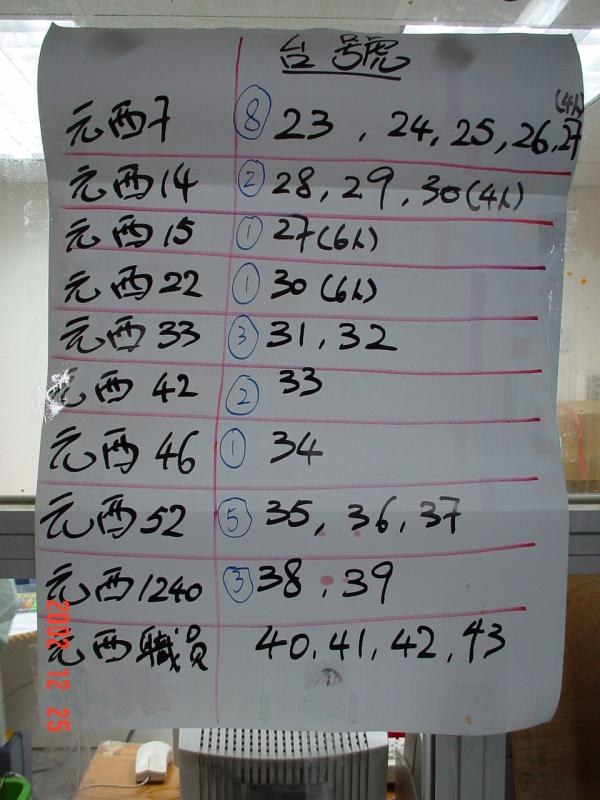 台號
元西7 ⑧ 23, 24, 25, 26, 27 (4人)
元西14 ② 28, 29, 30(4人)
元西15 ① 27(6人)
元西22 ① 30(6人)
元西33 ③ 31, 32
元西42 ② 33
元西46 ① 34
元西52 ⑤ 35, 36, 37
元西1240 ③ 38, 39
元西職員 40, 41, 42, 43
12 25